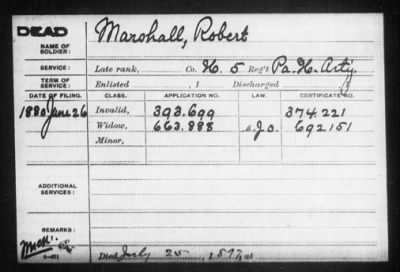 DEAD
NAME OF SOLDIER: Marshall, Robert
SERVICE: Late rank, Co. H. 5 Reg't Pa. H. Art'y
TERM OF SERVICE: Enlisted , 1 Discharged
DATE OF FILING. CLASS. APPLICATION NO. LAW. CERTIFICATE NO.
1880 June 26 Invalid, 393.699 374.221
Widow, 663.888 692151
Minor,
ADDITIONAL SERVICES:
REMARKS:
Died July 25, 1897, at